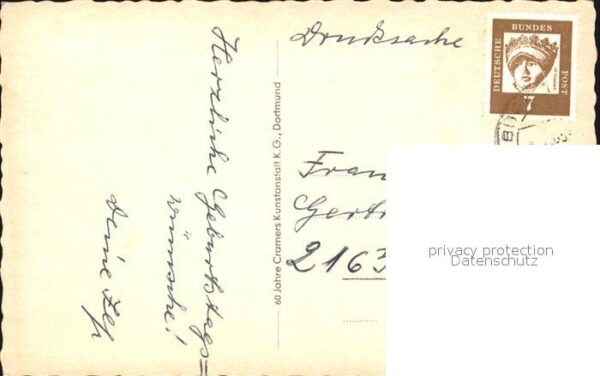 Drucksache
DEUTSCHE
BUNDES
POST
7
Herzliche Geburtstags=
wünsche!
Deine
60 Jahre Cramers Kunstanstalt K.G., Dortmund
Frau
Gertr
2163
privacy protection
Datenschutz